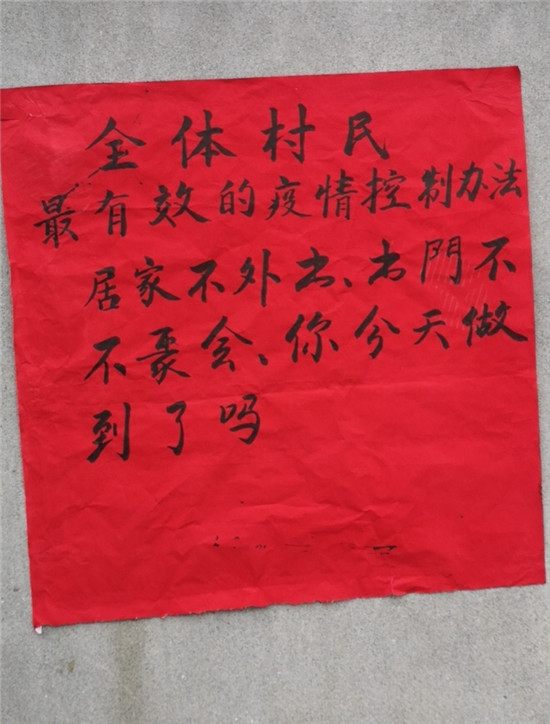 全体村民
最有效的疫情控制办法
居家不外出、出門不
不聚会、你兮天做
到了吗